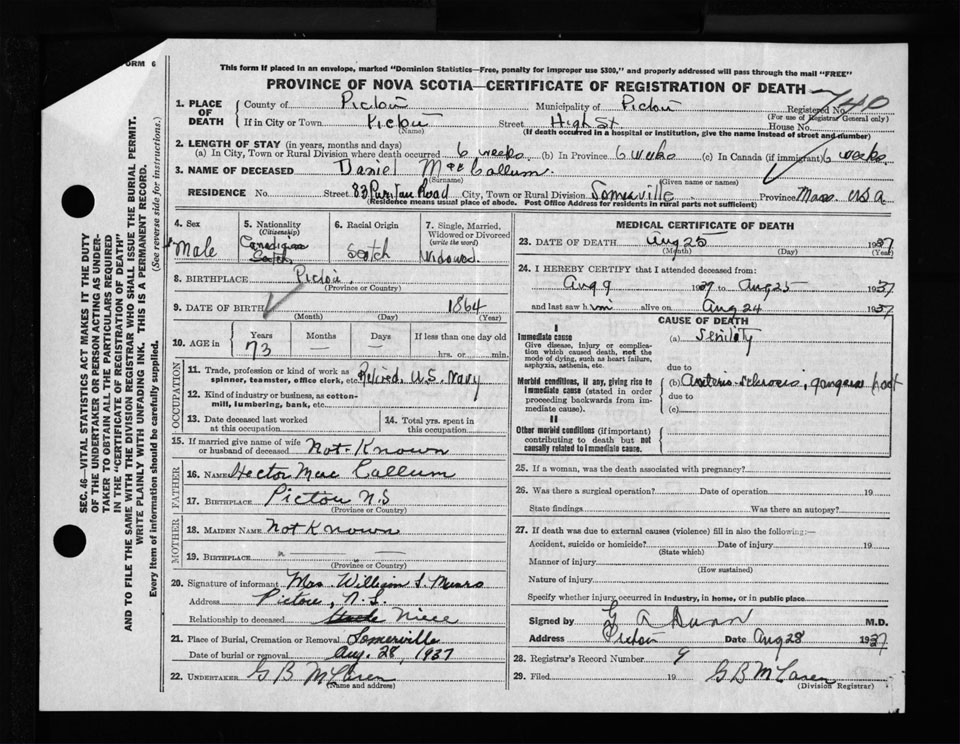 FORM 6
This form if placed in an envelope, marked "Dominion Statistics—Free, penalty for improper use $300," and properly addressed will pass through the mail "FREE"
PROVINCE OF NOVA SCOTIA—CERTIFICATE OF REGISTRATION OF DEATH
740
1. PLACE OF DEATH
County of Pictou Municipality of Pictou Registered No.
(For use of Registrar General only)
If in City or Town Pictou Street High St House No.
(Name) (If death occurred in a hospital or institution, give the name instead of street and number)
2. LENGTH OF STAY (in years, months and days)
(a) In City, Town or Rural Division where death occurred 6 weeks (b) In Province 6 weeks (c) In Canada (if immigrant) 6 weeks
3. NAME OF DECEASED Daniel MacCallum
(Surname) (Given name or names)
RESIDENCE No. Street 33 Puritan Road City, Town or Rural Division Somerville Province Mass. USA
(Residence means usual place of abode. Post Office Address for residents in rural parts not sufficient)
4. Sex Male
5. Nationality (Citizenship) Canadian Scotch
6. Racial Origin Scotch
7. Single, Married, Widowed or Divorced (write the word) Widowed.
8. BIRTHPLACE Pictou
(Province or Country)
9. DATE OF BIRTH 1864
(Month) (Day) (Year)
10. AGE in Years 73 Months — Days — If less than one day old hrs. or min.
OCCUPATION
11. Trade, profession or kind of work as spinner, teamster, office clerk, etc. Retired, U.S. Navy
12. Kind of industry or business, as cotton-mill, lumbering, bank, etc.
13. Date deceased last worked at this occupation
14. Total yrs. spent in this occupation
15. If married give name of wife or husband of deceased Not Known
FATHER
16. NAME Hector Mac Callum
17. BIRTHPLACE Pictou N.S
(Province or Country)
MOTHER
18. MAIDEN NAME Not Known
19. BIRTHPLACE " — —
(Province or Country)
20. Signature of informant Mrs. William S. Munro
Address Pictou, N.S.
Relationship to deceased Niece
21. Place of Burial, Cremation or Removal Somerville
Date of burial or removal Aug. 28, 1937
22. UNDERTAKER G B McLaren
(Name and address)
MEDICAL CERTIFICATE OF DEATH
23. DATE OF DEATH Aug 25 1937
(Month) (Day) (Year)
24. I HEREBY CERTIFY that I attended deceased from:
Aug 9 1937 to Aug 25 1937
and last saw him alive on Aug 24 1937
CAUSE OF DEATH
I
Immediate cause
Give disease, injury or complication which caused death, not the mode of dying, such as heart failure, asphyxia, asthenia, etc.
(a) Senility
due to
Morbid conditions, if any, giving rise to immediate cause (stated in order proceeding backwards from immediate cause).
(b) Arterio-sclerosis, gangrene foot
due to
(c)
II
Other morbid conditions (if important) contributing to death but not causally related to immediate cause.
25. If a woman, was the death associated with pregnancy?
26. Was there a surgical operation? Date of operation 19
State findings Was there an autopsy?
27. If death was due to external causes (violence) fill in also the following:—
Accident, suicide or homicide? Date of injury 19
(State which)
Manner of injury
(How sustained)
Nature of injury
Specify whether injury occurred in industry, in home, or in public place
Signed by G A Dunn M.D.
Address Pictou Date Aug 28 1937
28. Registrar's Record Number 9
29. Filed 19 G B McLaren
(Division Registrar)
SEC. 46—VITAL STATISTICS ACT MAKES IT THE DUTY
OF THE UNDERTAKER OR PERSON ACTING AS UNDER-
TAKER TO OBTAIN ALL THE PARTICULARS REQUIRED
IN THE "CERTIFICATE OF REGISTRATION OF DEATH"
AND TO FILE THE SAME WITH THE DIVISION REGISTRAR WHO SHALL ISSUE THE BURIAL PERMIT.
WRITE PLAINLY WITH UNFADING INK. THIS IS A PERMANENT RECORD.
Every item of information should be carefully supplied. (See reverse side for instructions.)